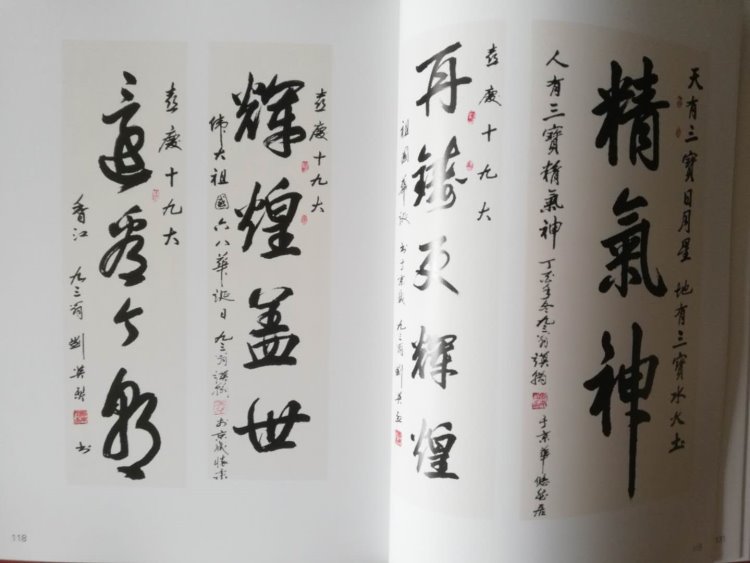 天有三寶日月星 地有三寶水火土
精氣神
人有三寶精氣神 丁酉年冬九三翁 于京華悠然居
喜慶十九大
再鑄更輝煌
祖國華誕 书于京城 九三翁 劉英
喜慶十九大
輝煌盖世
偉大祖國六八華誕日 九三翁
喜慶十九大
還看今朝
香江 九三翁 劉英 书
118